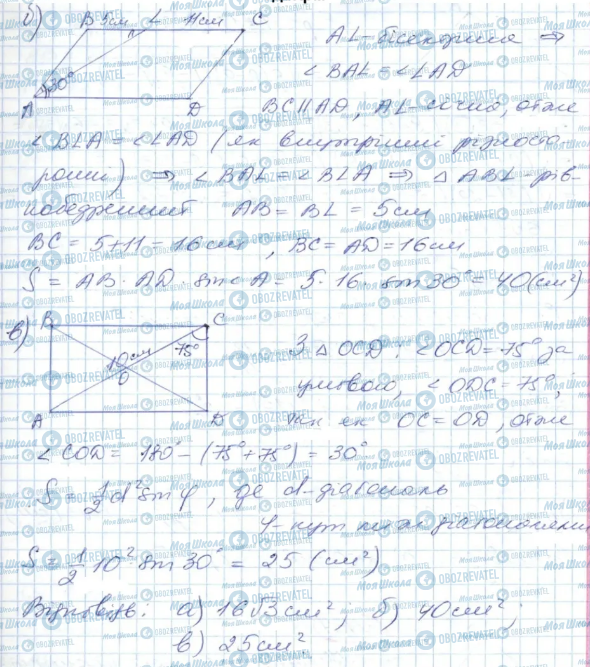 б) B 5см L 11см C
30°
A D
AL - бісектриса ⇒
∠BAL = ∠LAD
BC || AD, AL - січна, отже
∠BLA = ∠LAD (як внутрішні різносто-
ронні) ⇒ ∠BAL = ∠BLA ⇒ △ABL - рів-
нобедрений AB = BL = 5см
BC = 5+11 = 16см, BC = AD = 16см
S = AB · AD · sin A = 5 · 16 · sin 30° = 40 (см²)
в) B C
10см 75°
O
A D
З △OCD: ∠OCD = 75° за
умовою, ∠ODC = 75°,
так як OC = OD, отже
∠COD = 180° - (75° + 75°) = 30°
S = 1/2 d² sin φ, де d - діагональ
φ - кут між діагоналями
S = 1/2 10² sin 30° = 25 (см²)
Відповідь: а) 16√3 см², б) 40 см²;
в) 25 см².